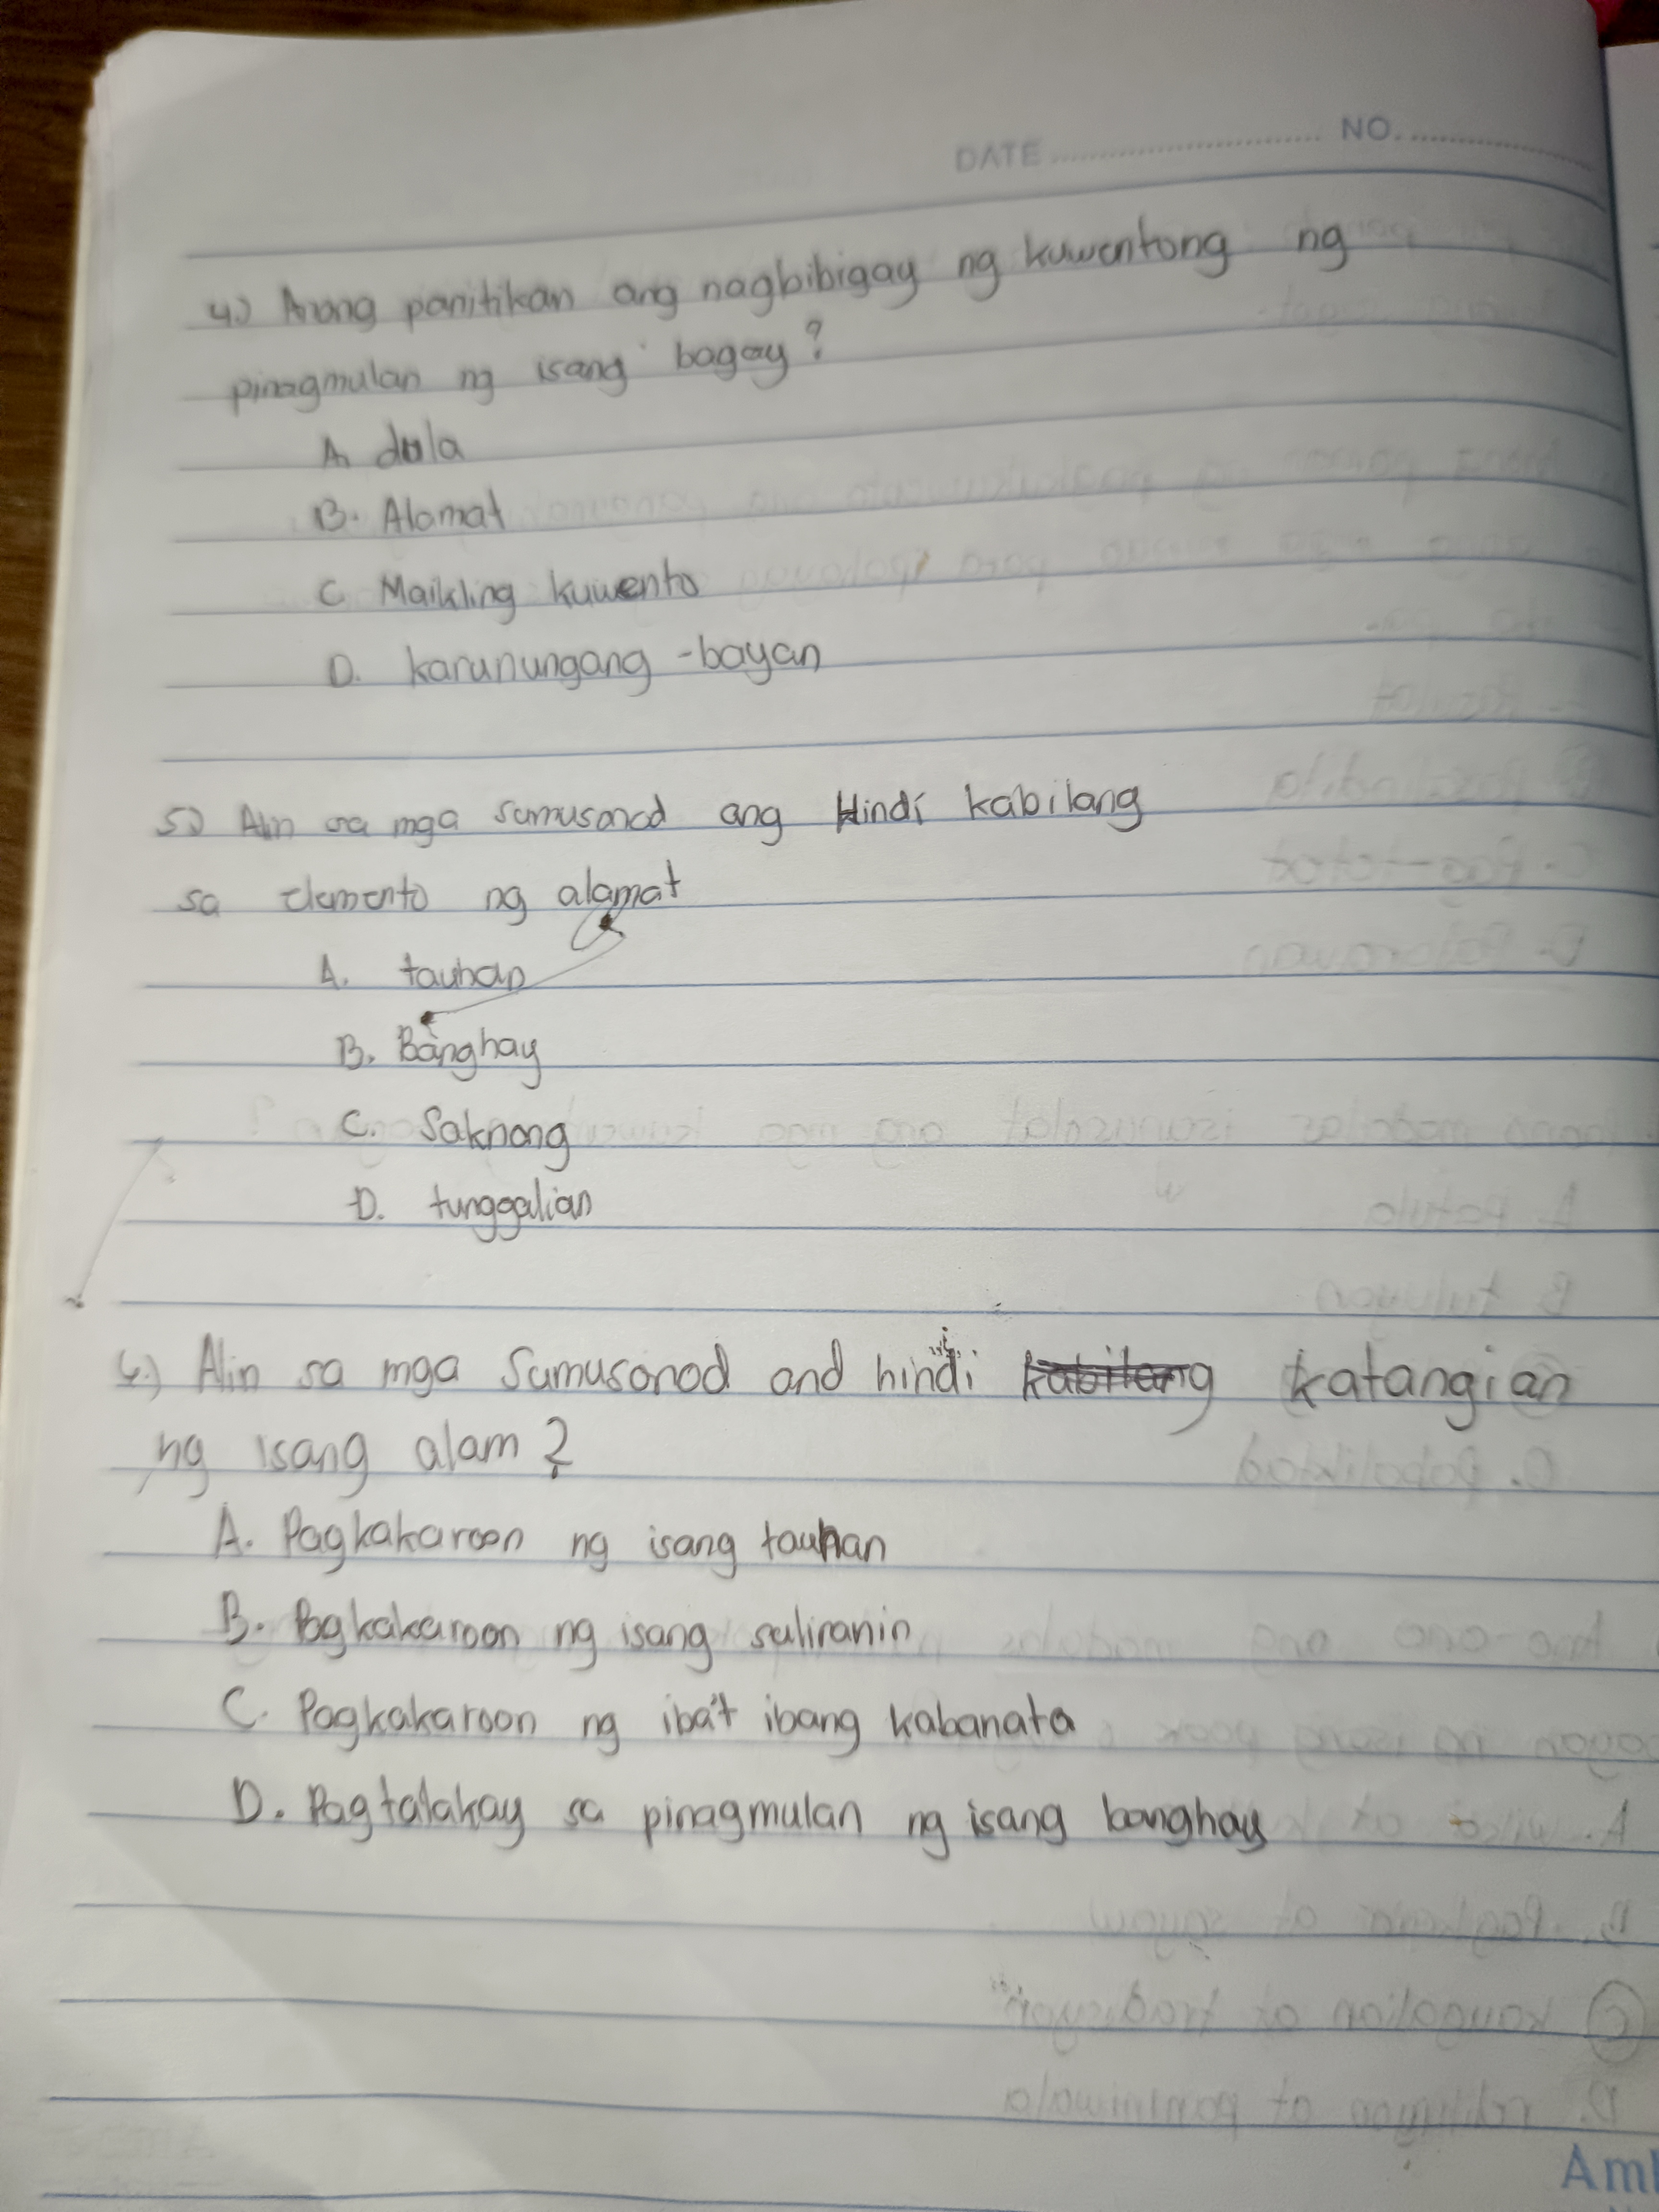 DATE NO.
4.) Anong panitikan ang nagbibigay ng kuwentong ng
pinagmulan ng isang bagay?
A. dula
B. Alamat
C Maikling kuwento
D. karunungang -bayan
5.) Alin sa mga sumusonod ang Hindi kabilang
sa elemento ng alamat
A. tauhan
B. Banghay
C. Saknong
D. tunggalian
6.) Alin sa mga Sumusonod and hindi katangian
ng isang alam?
A. Pagkakaroon ng isang tauhan
B. Pagkakaroon ng isang suliranin
C. Pagkakaroon ng iba't ibang kabanata
D. Pagtalakay sa pinagmulan ng isang banghay